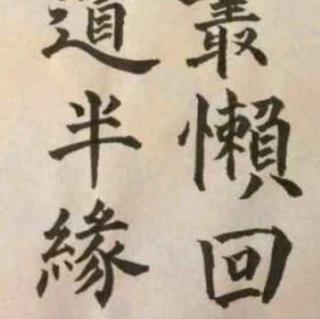 叢懶回
道半緣